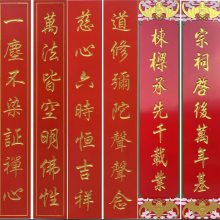 宗祠啓後萬年基
棟樑承先千載業
道修彌陀聲聲念
慈心六時恒吉祥
萬法皆空明佛性
一塵不染証禪心